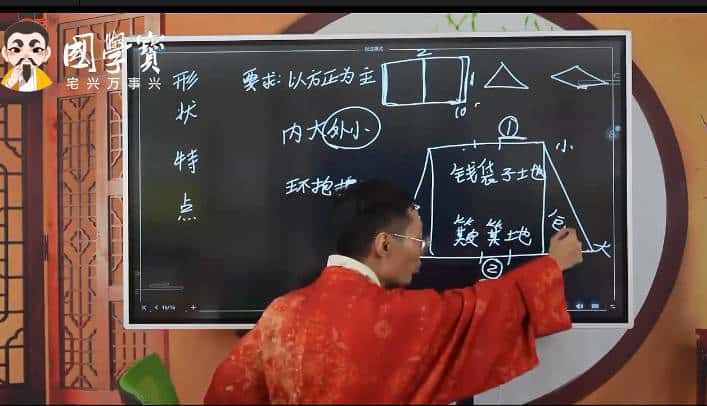 國學寶
宅兴万事兴
形状特点
要求:以方正为主
2
10
内大外小
①
小
钱袋子土地
簸箕土地
大
②